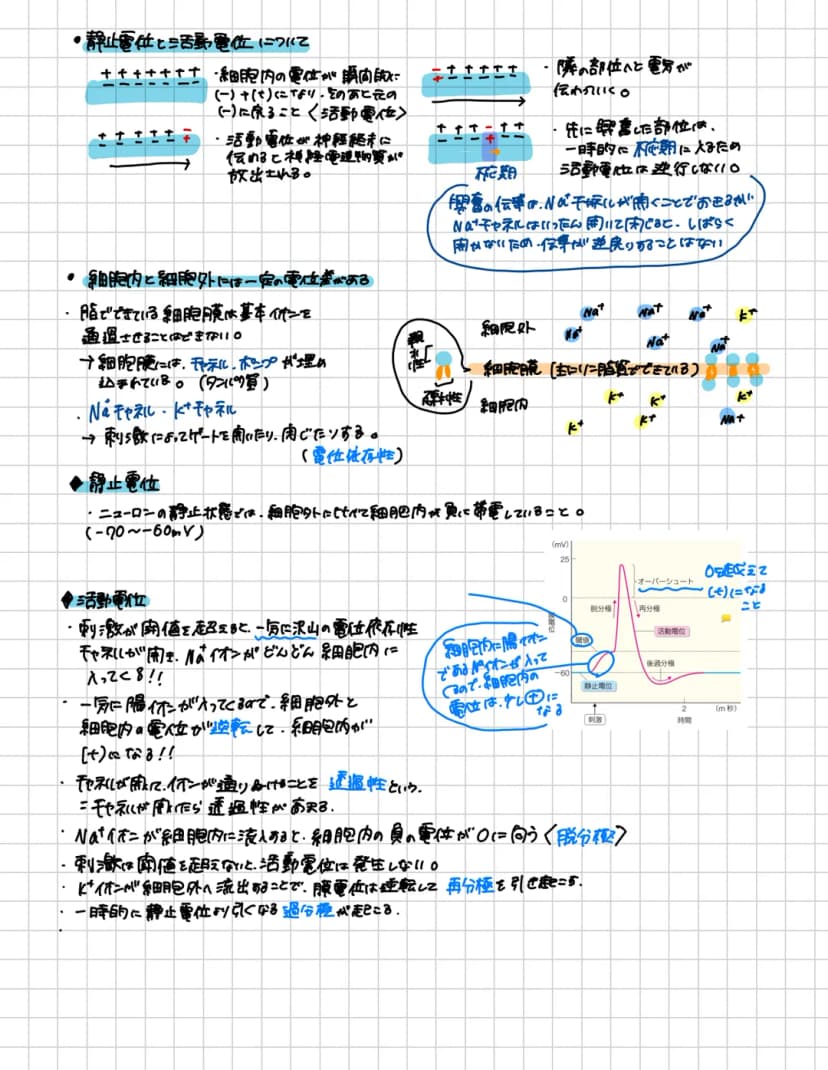 • 静止電位と活動電位について
+ + + + + + +
- - - - - - -
・細胞内の電位が瞬間的に
(-)→(+)になり、そのあと元の
(-)に戻ること〈活動電位〉
+ + + + + + -
- - - - - - +
・活動電位が神経終末に
伝わると神経伝達物質が
放出される。
- + + + + + +
+ - - - - - -
・隣の部位へと電気が
伝わっていく。
+ + + - + + +
- - - + - - -
不応期
・先に興奮した部位は、
一時的に不応期に入るため
活動電位は逆行しない。
興奮の伝導は、Na⁺チャネルが開くことでおきるが
Na⁺チャネルはいったん開いて閉じると、しばらく
開かないため、伝導が逆戻りすることはない
• 細胞内と細胞外には一定の電位差がある
・脂でできている細胞膜は基本イオンを
通過させることはできない。
→細胞膜には、チャネル・ポンプが埋め
込まれている。(タンパク質)
・Na⁺チャネル・K⁺チャネル
→刺激によってゲートを開いたり、閉じたりする。
(電位依存性)
親水性
疎水性
細胞外
細胞膜(主にリン脂質でできている)
細胞内
Na⁺ Na⁺ Na⁺ K⁺
Na⁺ Na⁺ Na⁺
K⁺ K⁺ K⁺
K⁺ K⁺ Na⁺
◆静止電位
・ニューロンの静止状態では、細胞外に比べて細胞内が負に帯電していること。
(-70〜-60mV)
◆活動電位
・刺激が閾値を超えると、一気に沢山の電位依存性
チャネルが開き、Na⁺イオンがどんどん細胞内に
入ってくる!!
・一気に陽イオンが入ってくるので、細胞外と
細胞内の電位が逆転して、細胞内が
(+)になる!!
細胞内に陽イオン
であるNa⁺イオンが入って
くるので、細胞内の
電位は、少し(+)に
なる
(mV)
25
0
-60
膜電位
オーバーシュート
脱分極
再分極
活動電位
閾値
後過分極
静止電位
刺激
2
(m秒)
時間
0を超えて
(+)になる
こと
・チャネルが開いて、イオンが通り抜けることを透過性という。
=チャネルが開いたら透過性がある。
・Na⁺イオンが細胞内に流入すると、細胞内の負の電位が0に向う〈脱分極〉
・刺激は閾値を超えないと、活動電位は発生しない。
・K⁺イオンが細胞外へ流出することで、膜電位は逆転して再分極を引き起こす。
・一時的に静止電位より引くなる過分極が起こる.